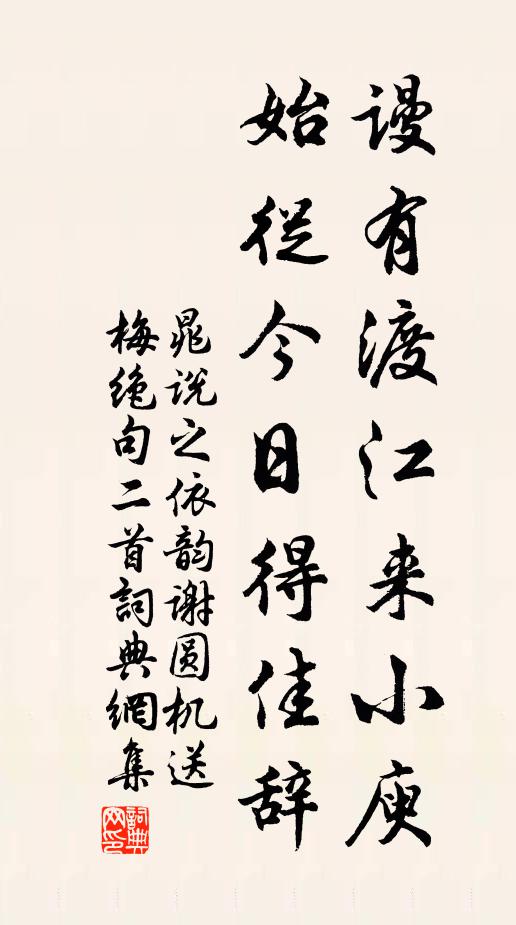 谩有渡江来小庾
始從今日得佳辞
晁说之依韵谢圆机送
梅绝句二首詞典網集
詞典网印